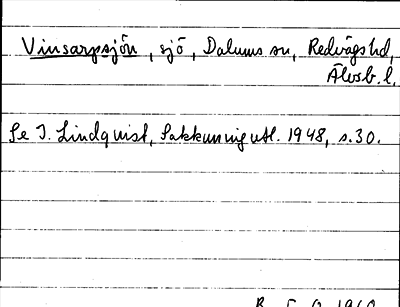 Vinsarpsjön, sjö, Dalums sn, Redvägs hd,
Älvsb. l.
Se I. Lindquist, Sakkunnigutl. 1948, s. 30.